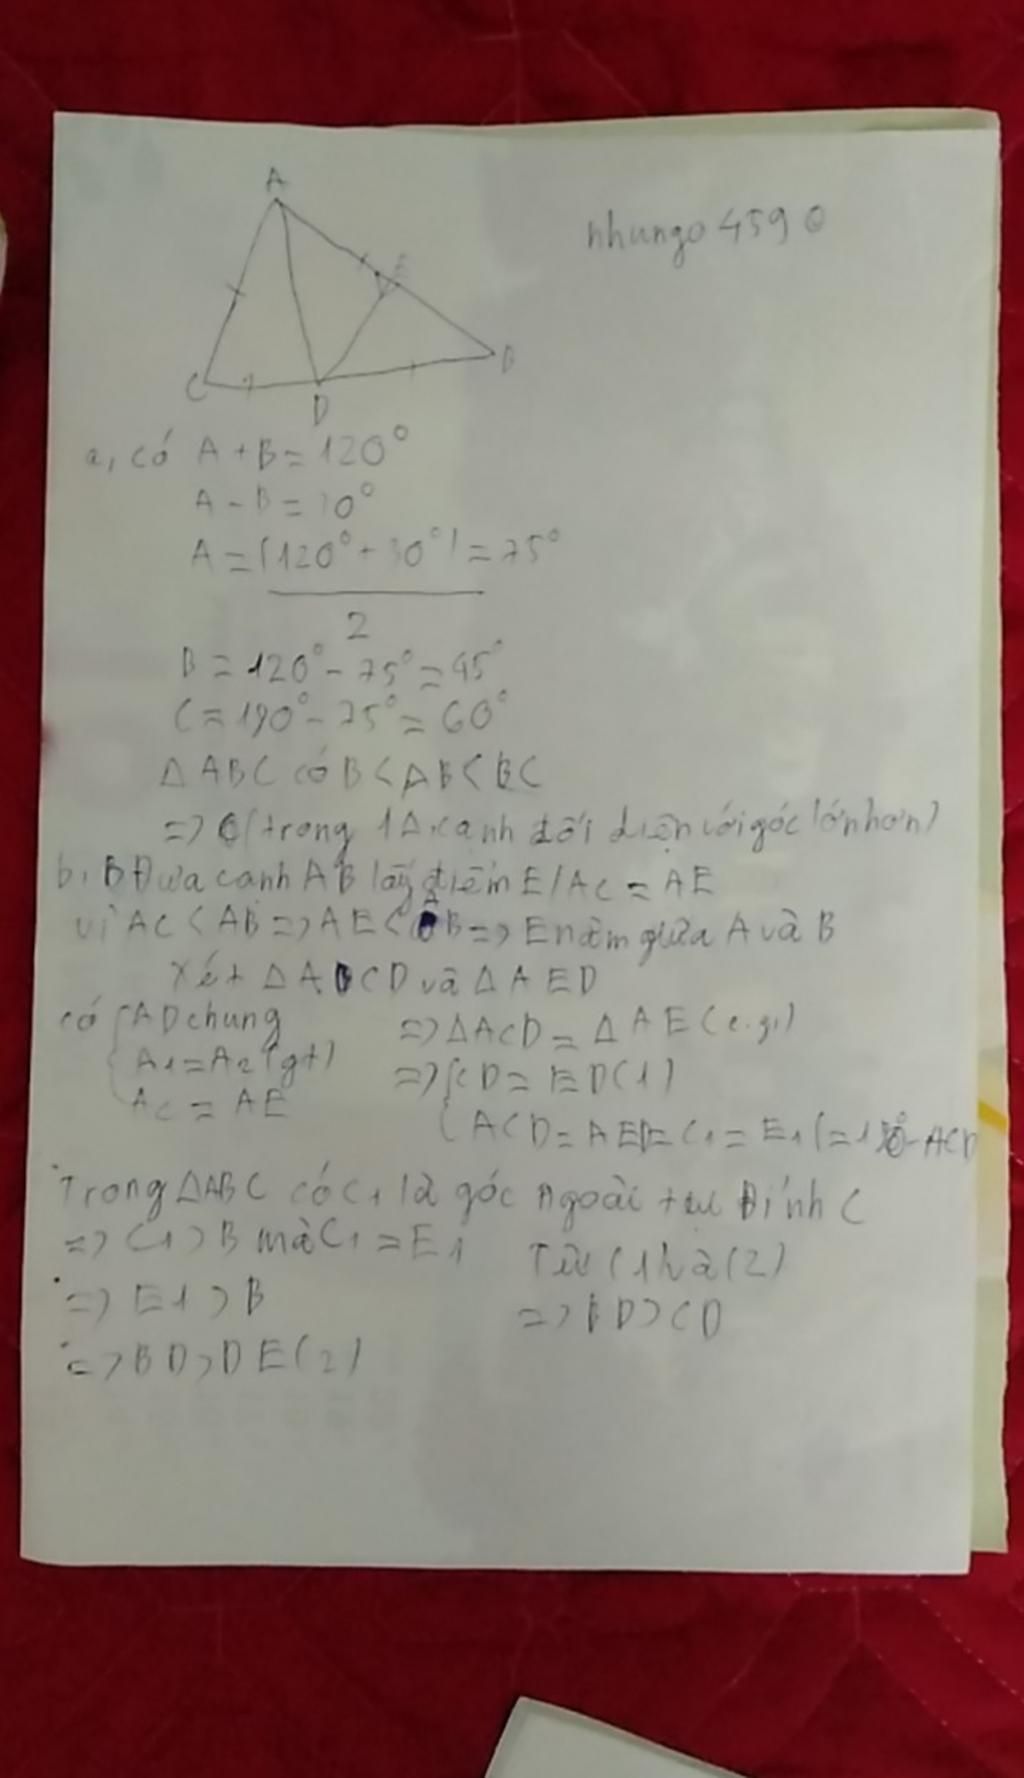 nhungo 459
A
E
C
D
B
a, có A + B = 120°
A - B = 30°
A = (120° + 30°) = 75°
2
B = 120° - 75° = 45°
C = 190° - 75° = 60°
Δ ABC có B < AB < BC
=> C (trong 1Δ, cạnh đối diện với góc lớn hơn)
b, B Đưa cạnh AB lấy điểm E / AC = AE
vì AC < AB => AE < AB => E nằm giữa A và B
Xét Δ ACD và Δ AED
có { AD chung
A1 = A2 (gt)
AC = AE
=> Δ ACD = Δ AE (c.g.)
=> { CD = ED (1)
ACD = AED = C1 = E1 (= 180° - ACD
Trong ΔABC có C1 là góc ngoài tại Đỉnh C
=> C1 > B mà C1 = E1
=> E1 > B
=> BD > DE (2)
Từ (1) và (2)
=> BD > CD